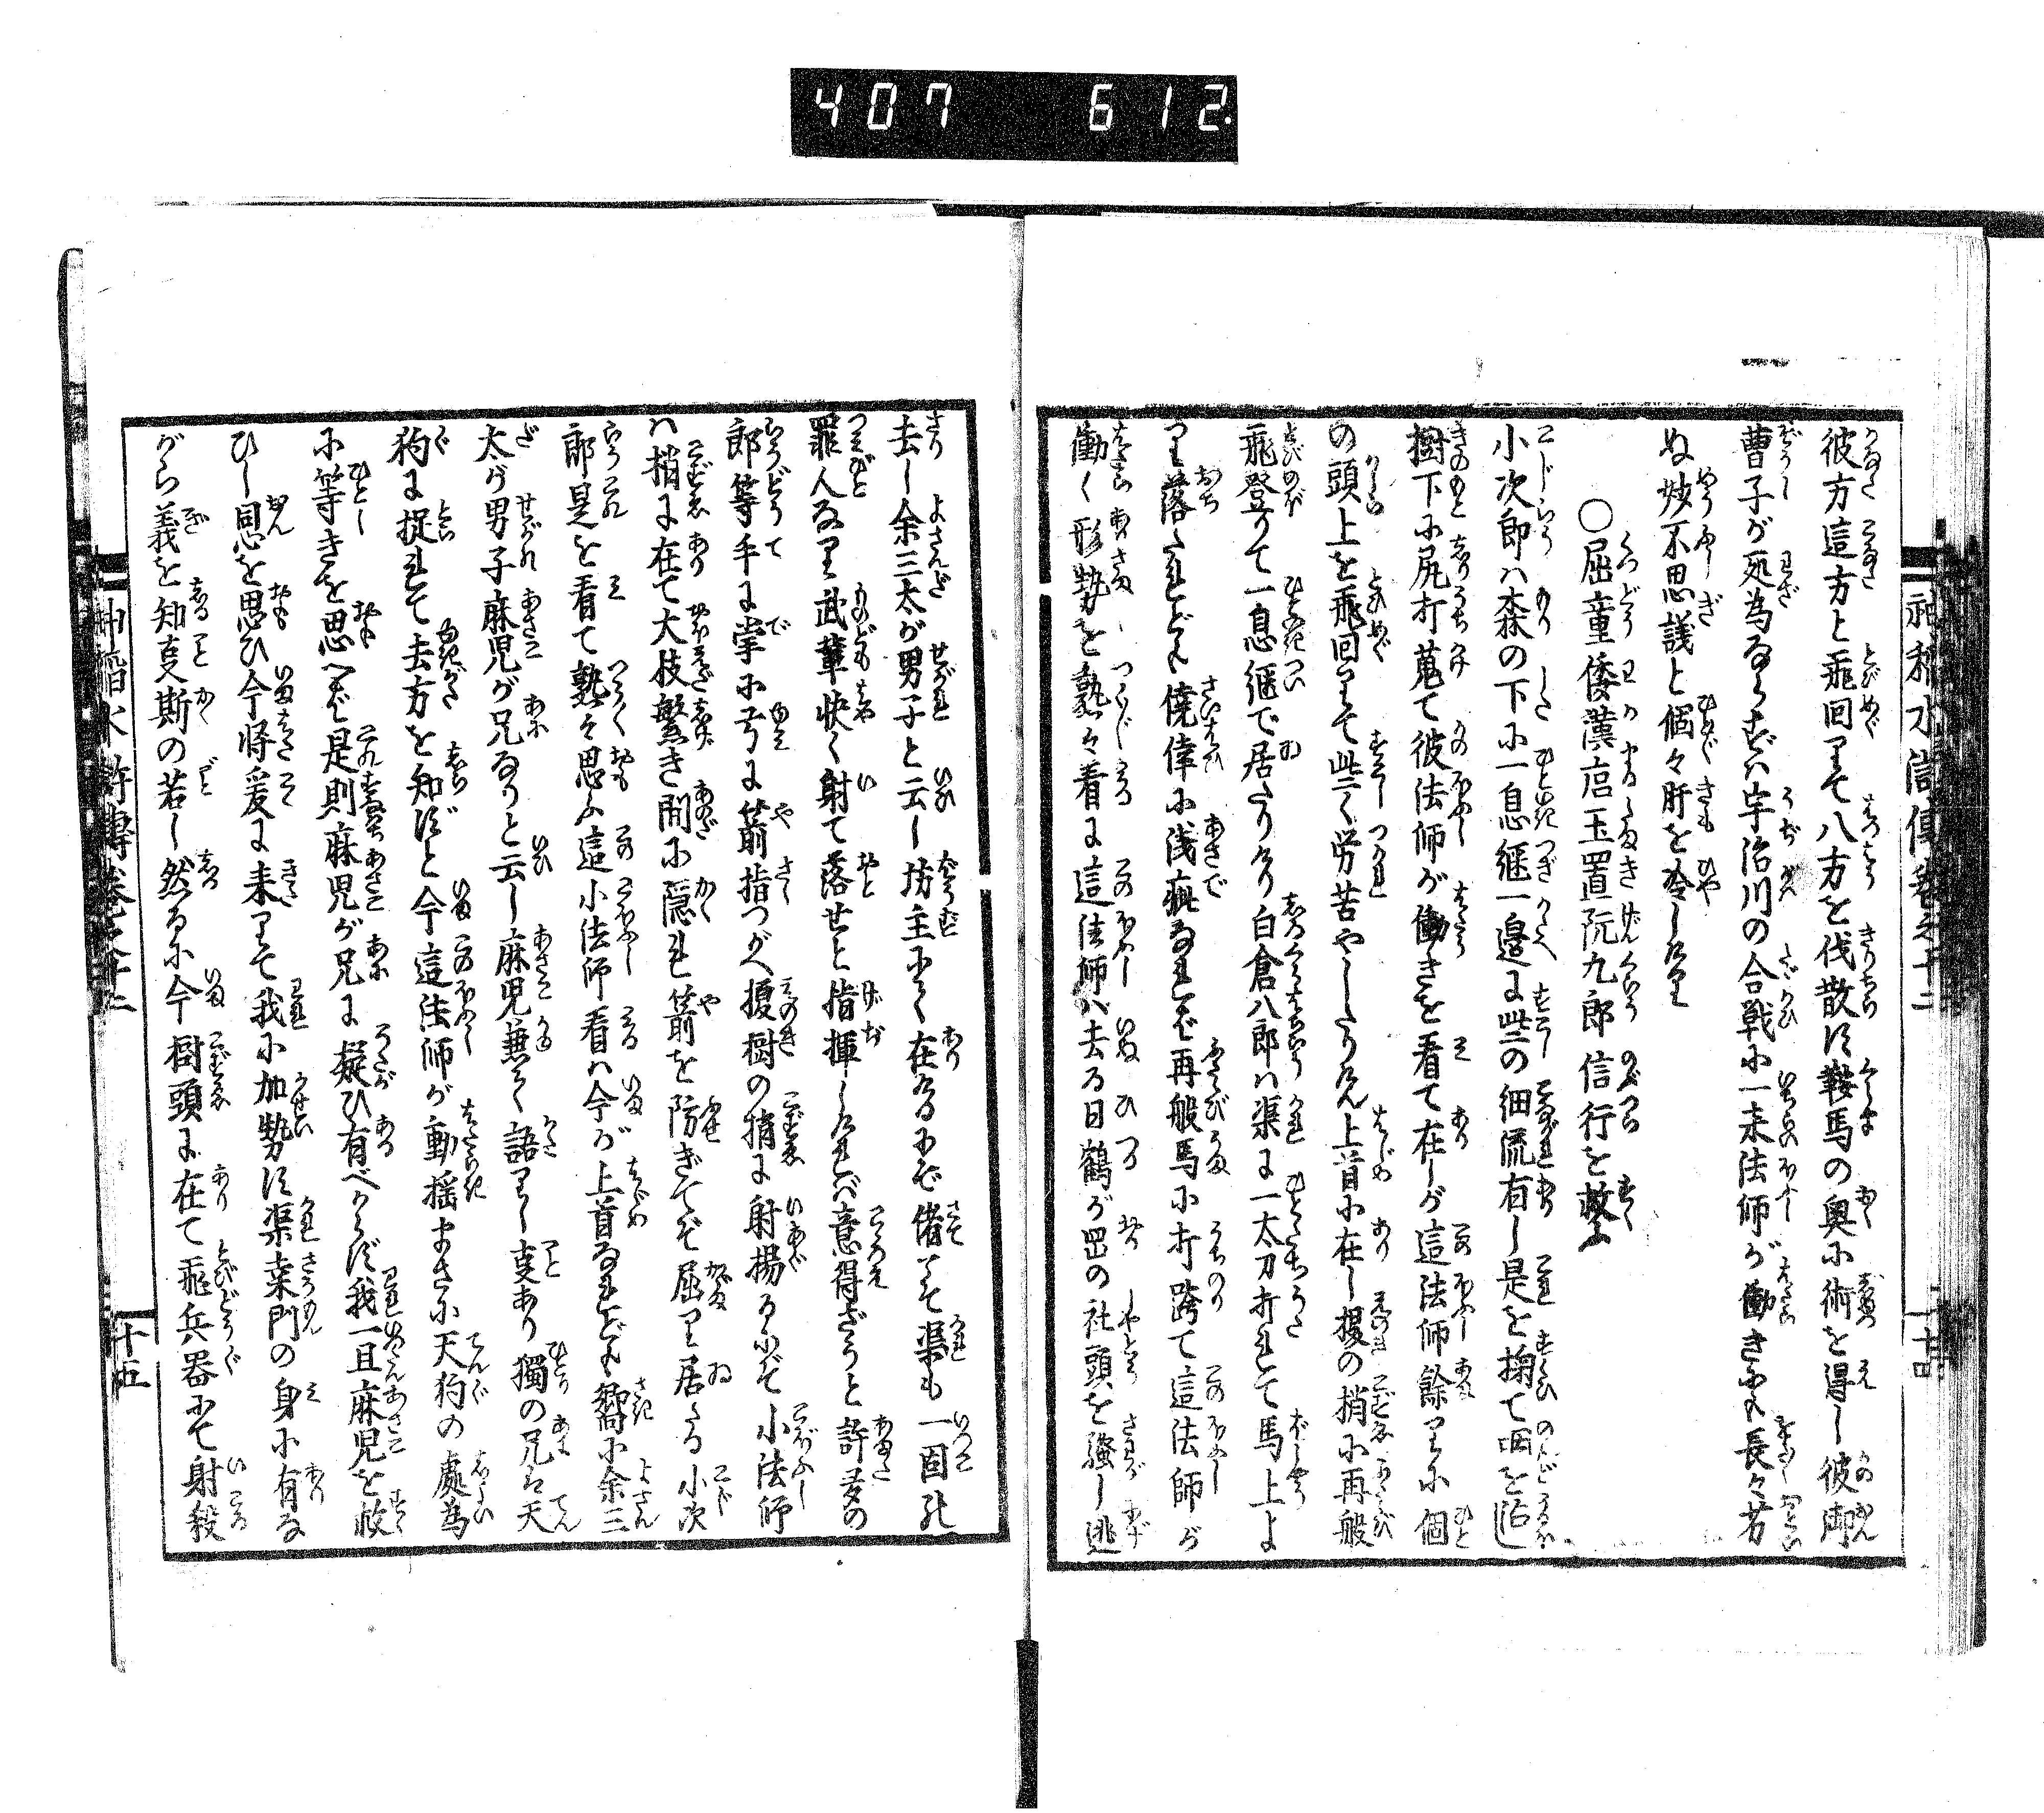 407 612.
神稲水滸傳巻之十二
彼方這方と飛回りて八方を伐散に鞍馬の奥に術を得し彼御
曹子が所為ならずバ宇治川の合戦に一来法師が働きにも長々劣
ぬ妙不思議と個々肝を冷しけり
○屈童倭漢店玉置阮九郎信行を救ふ
小次郎ハ森の下に一息継一邊に些の細流有し是を掬て咽を沾し
樹下に尻打蒐て彼法師が働きを看て在しが這法師餘りに個
の頭上を飛回りて些く労苦やしたりけん上首に在し榎の梢に再般
飛登りて一息継で居たりけり白倉八郎ハ渠に一太刀打れて馬上よ
り落たれども僥倖に浅疵なれバ再般馬に打跨て這法師が
働く形勢を熟々看に這法師ハ去る日鶴が岡の社頭を騒し逃
去し余三太が男子と云し坊主にて在けるにぞ偖こそ渠も一固の
罪人なり武輩快く射て落せと指揮しけれバ意得ざうと許多の
郎等手に掌に弓に箭指つがへ榎樹の梢に射揚るにぞ小法師
ハ梢に在て大枝繁き間に隠れ箭を防ぎてぞ屈り居たる小次
郎是を看て熟々思ふ這小法師看ハ今が上首なれども嚮に余三
太が男子麻児が兄なりと云し麻児兼て語りし叓あり獨の兄は天
狗に捉れて去方を知ずと今這法師が動揺まさに天狗の處為
に等きを思へば是則麻児が兄に疑ひ有べからず我一旦麻児を救
ひし恩を思ひ今将爰に来りて我に加勢に渠桒門の身に有な
がら義を知叓斯の若し然るに今樹頭に在て飛兵器にて射殺
神稲水滸傳巻之十二
十五